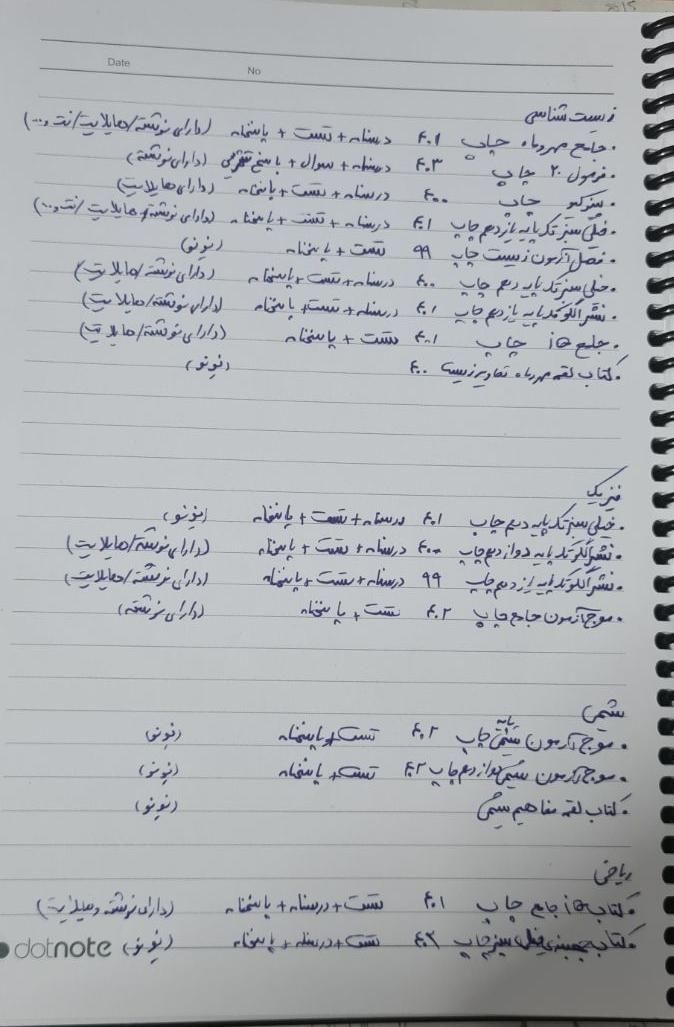 Date
No
زیست شناسی
• جامع مهروماه چاپ ۴۰۱ درسنامه + تست + پاسخنامه (دارای نوشته/هایلایت/نت و...)
• فرمول ۲۰ چاپ ۴۰۳ درسنامه + سوال + پاسخ تشریحی (دارای نوشته)
• چاپ ۴۰۰ درسنامه + تست + پاسخنامه (دارای هایلایت)
• خیلی سبز تک پایه یازدهم چاپ ۴۰۱ درسنامه + تست + پاسخنامه (دارای نوشته/هایلایت/نت و...)
• فصل آزمون زیست چاپ ۹۹ تست + پاسخنامه (نونو)
• خیلی سبز تک پایه دهم چاپ ۴۰۰ درسنامه + تست + پاسخنامه (دارای نوشته/هایلایت)
• نشر الگو تک پایه یازدهم چاپ ۴۰۱ درسنامه + تست + پاسخنامه (دارای نوشته/هایلایت)
• جامع چاپ ۴۰۱ تست + پاسخنامه (دارای نوشته/هایلایت)
• کتاب لقمه مهروماه تصاویر زیست ۴۰۰ (نونو)
فیزیک
• خیلی سبز تک پایه دهم چاپ ۴۰۱ درسنامه + تست + پاسخنامه (نونو)
• نشر الگو تک پایه دوازدهم چاپ ۴۰۰ درسنامه + تست + پاسخنامه (دارای نوشته/هایلایت)
• نشر الگو تک پایه یازدهم چاپ ۹۹ درسنامه + تست + پاسخنامه (دارای نوشته/هایلایت)
• موج آزمون جامع چاپ ۴۰۲ تست + پاسخنامه (دارای نوشته)
شیمی
• موج آزمون شیمی پایه چاپ ۴۰۲ تست + پاسخنامه (نونو)
• موج آزمون شیمی دوازدهم چاپ ۴۰۲ تست + پاسخنامه (نونو)
• کتاب لقمه مفاهیم شیمی (نونو)
ریاضی
• کتاب جامع چاپ ۴۰۱ تست + درسنامه + پاسخنامه (دارای نوشته و هایلایت)
• کتاب جمعبندی خیلی سبز چاپ ۴۰۲ تست + درسنامه + پاسخنامه (نونو)
dotnote